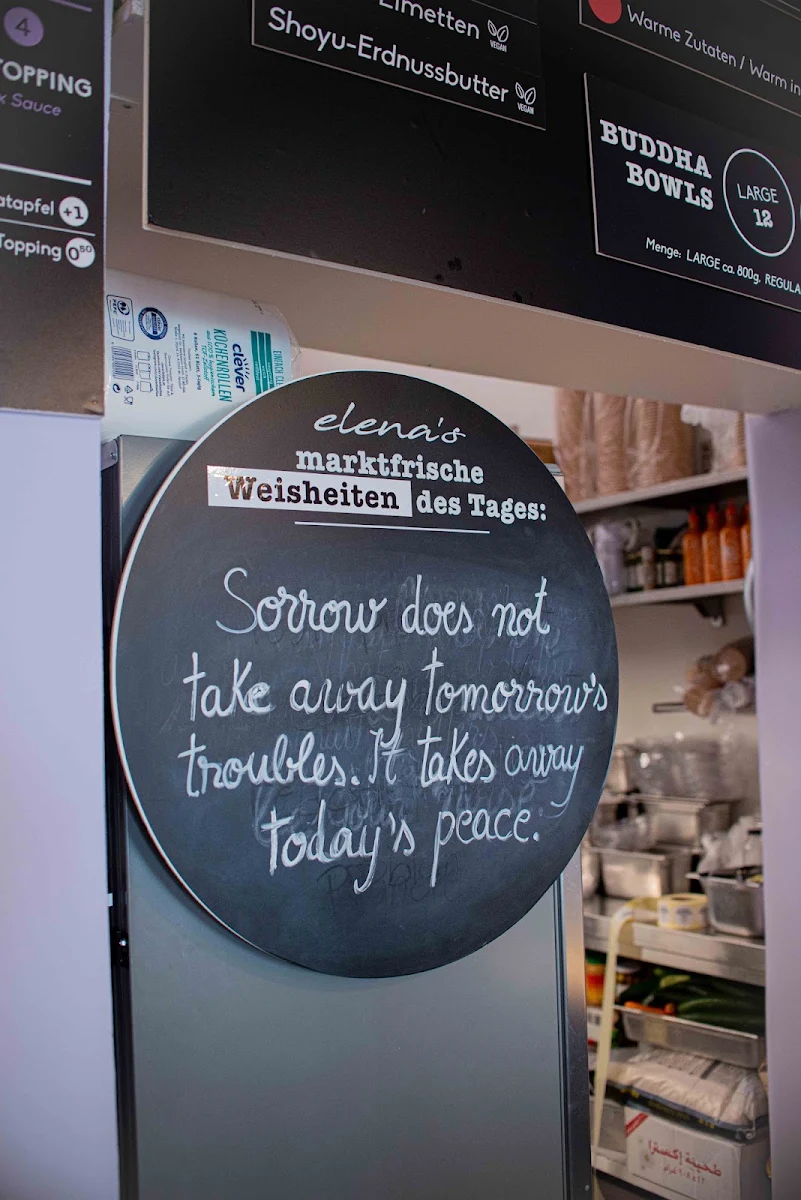 4
TOPPING
x Sauce
atapfel +1
Topping 0⁸⁰
Limetten VEGAN
Shoyu-Erdnussbutter VEGAN
Warme Zutaten / Warm in
BUDDHA
BOWLS
LARGE
12
Menge: LARGE ca. 800g, REGULA
clever
KÜCHENROLLEN
elena's
marktfrische
Weisheiten des Tages:
Sorrow does not
take away tomorrow's
troubles. It takes away
today's peace.
طحينة إكسترا